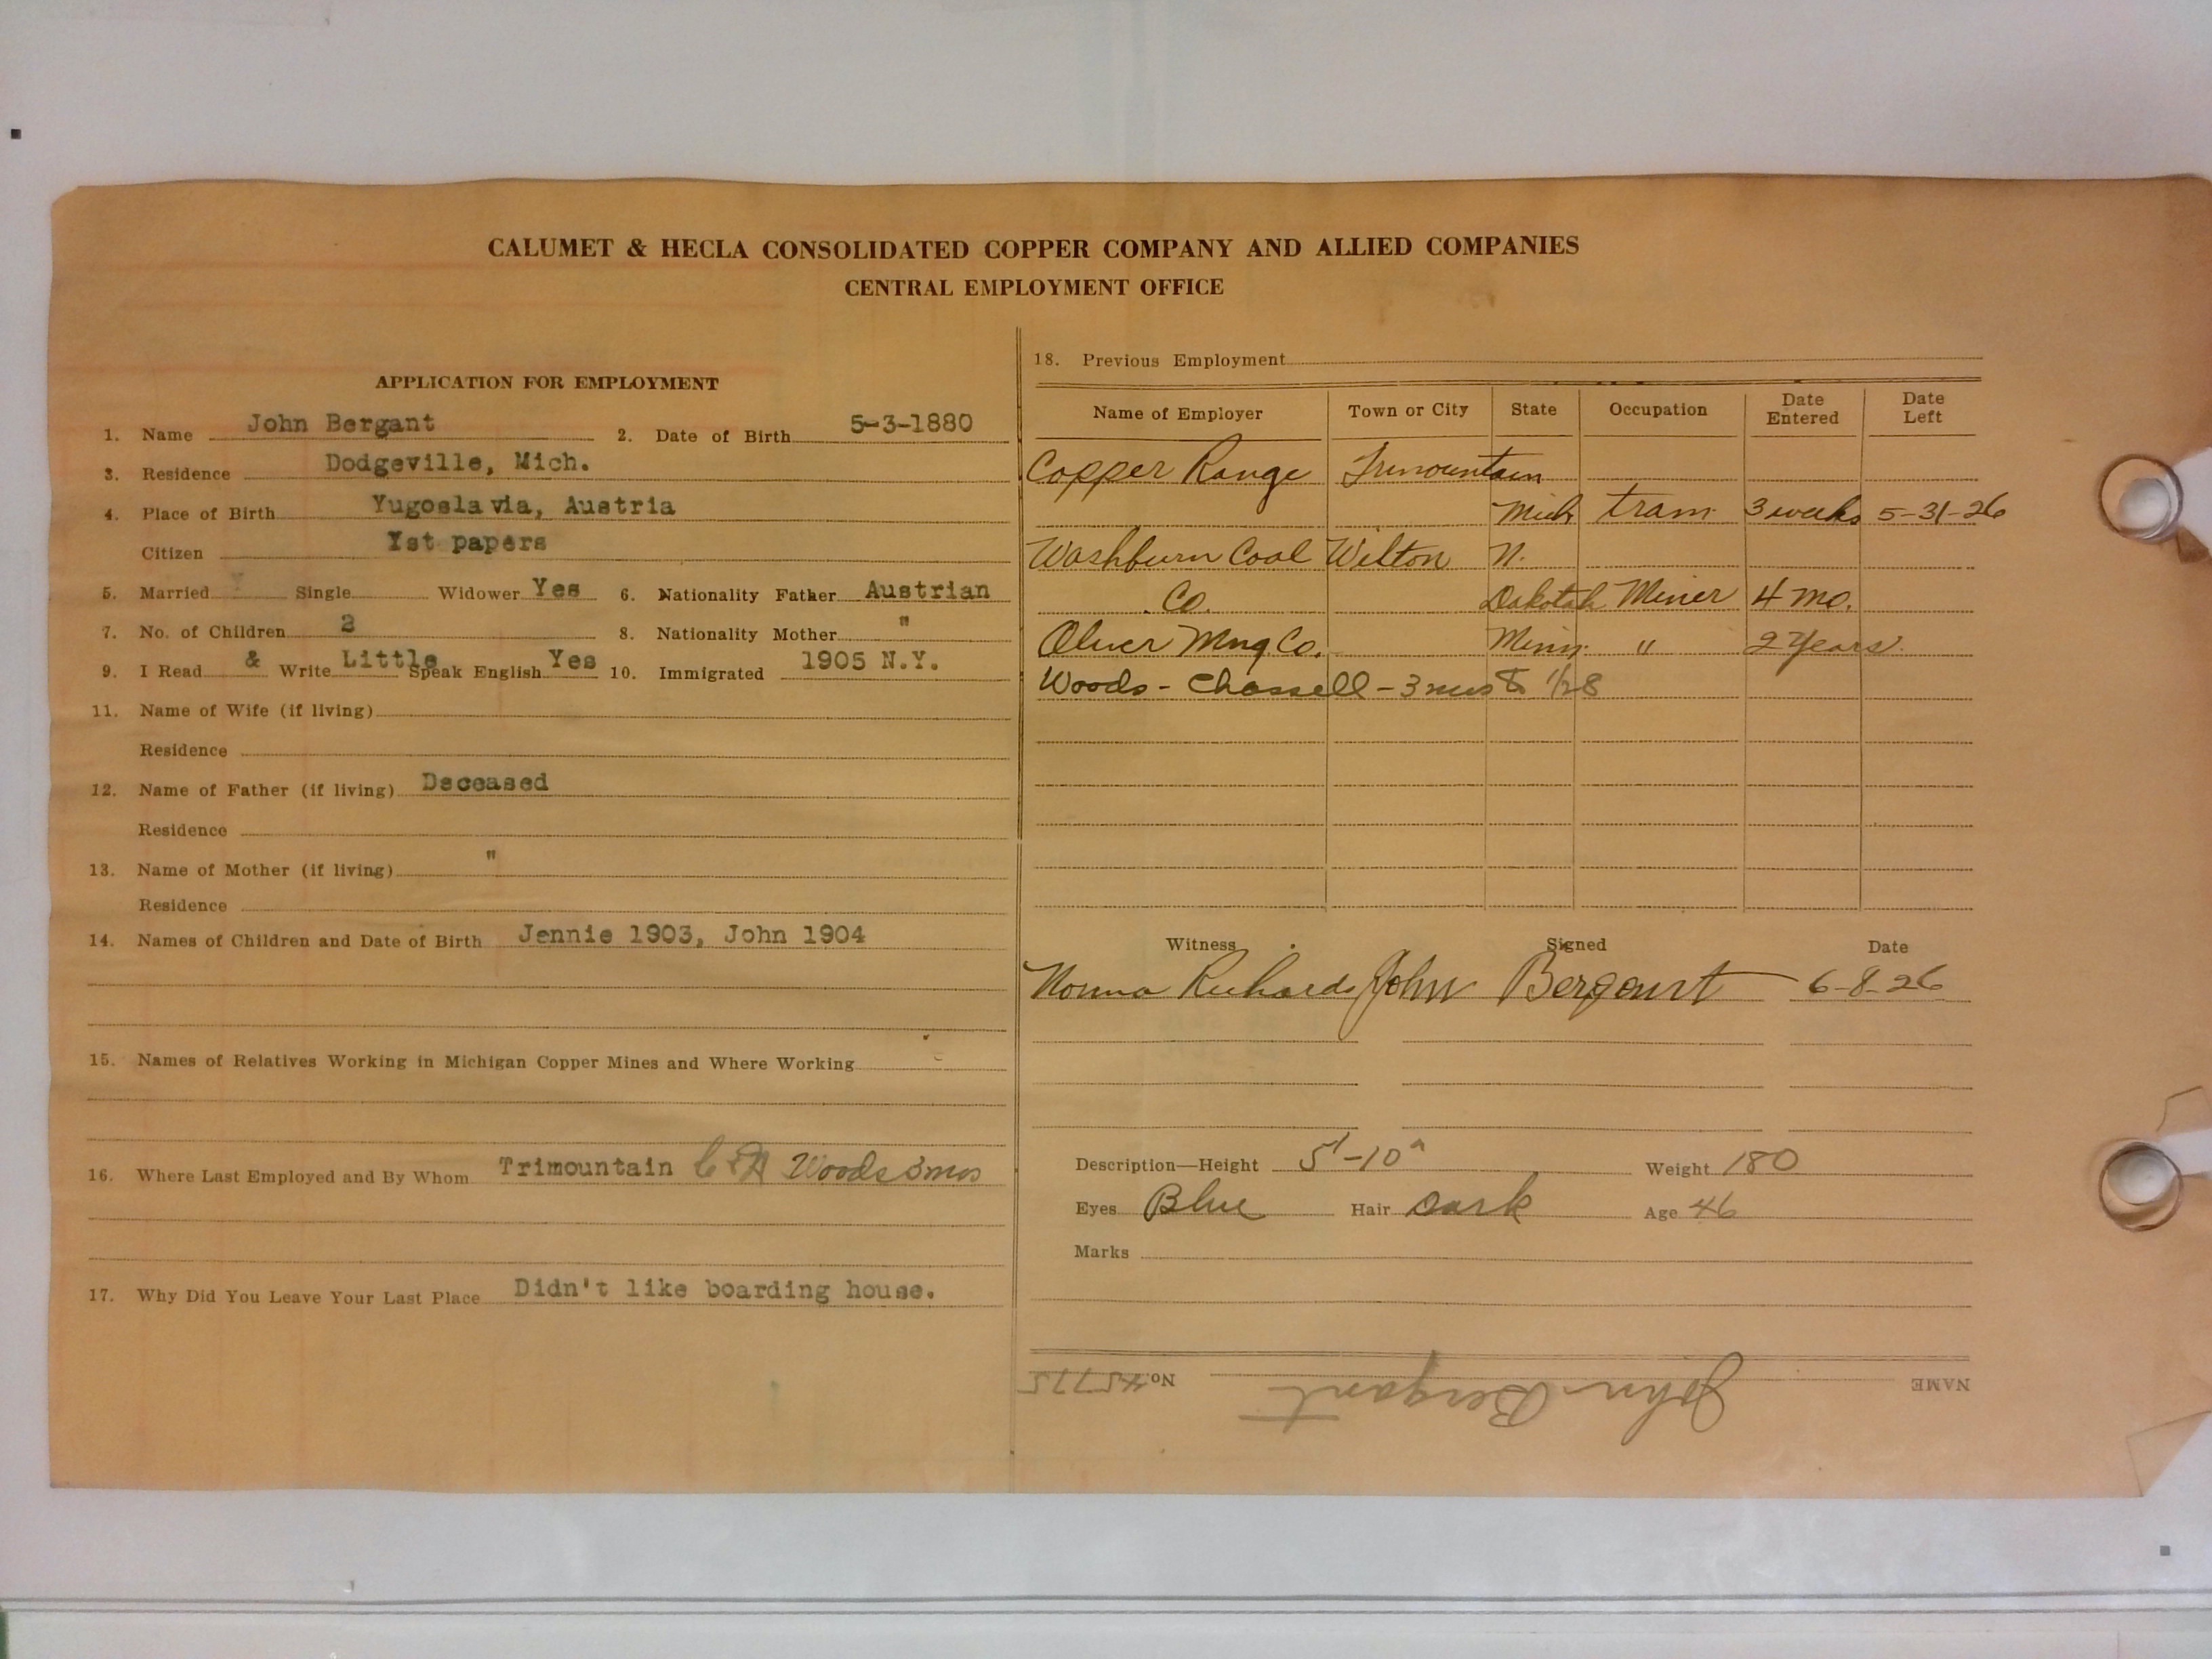 CALUMET & HECLA CONSOLIDATED COPPER COMPANY AND ALLIED COMPANIES
CENTRAL EMPLOYMENT OFFICE
APPLICATION FOR EMPLOYMENT
1. Name John Bergant 2. Date of Birth 5-3-1880
3. Residence Dodgeville, Mich.
4. Place of Birth Yugoslavia, Austria
Citizen Ist papers
5. Married Single Widower Yes 6. Nationality Father Austrian
7. No. of Children 2 8. Nationality Mother "
9. I Read & Write Little Speak English Yes 10. Immigrated 1905 N.Y.
11. Name of Wife (if living)
Residence
12. Name of Father (if living) Deceased
Residence
13. Name of Mother (if living) "
Residence
14. Names of Children and Date of Birth Jennie 1903, John 1904
15. Names of Relatives Working in Michigan Copper Mines and Where Working
16. Where Last Employed and By Whom Trimountain Woods 3 mos
17. Why Did You Leave Your Last Place Didn't like boarding house.
18. Previous Employment
Name of Employer Town or City State Occupation Date Entered Date Left
Copper Range Trimountain
Mich tram 3 weeks 5-31-26
Washburn Coal Wilton N.
Co. Dakotah Miner 4 mo.
Oliver Mng. Co. Minn. " 2 Years.
Woods - Chassell - 3 mos to 1/28
Witness Signed Date
Norma Richards John Bergant 6-8-26
Description—Height 5'-10" Weight 180
Eyes Blue Hair dark Age 46
Marks
NAME John Bergant No. 45775